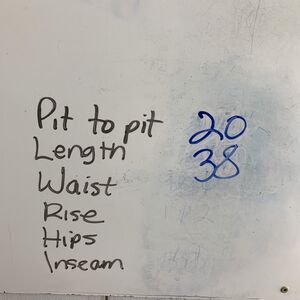 Pit to pit 20
Length 38
Waist
Rise
Hips
Inseam